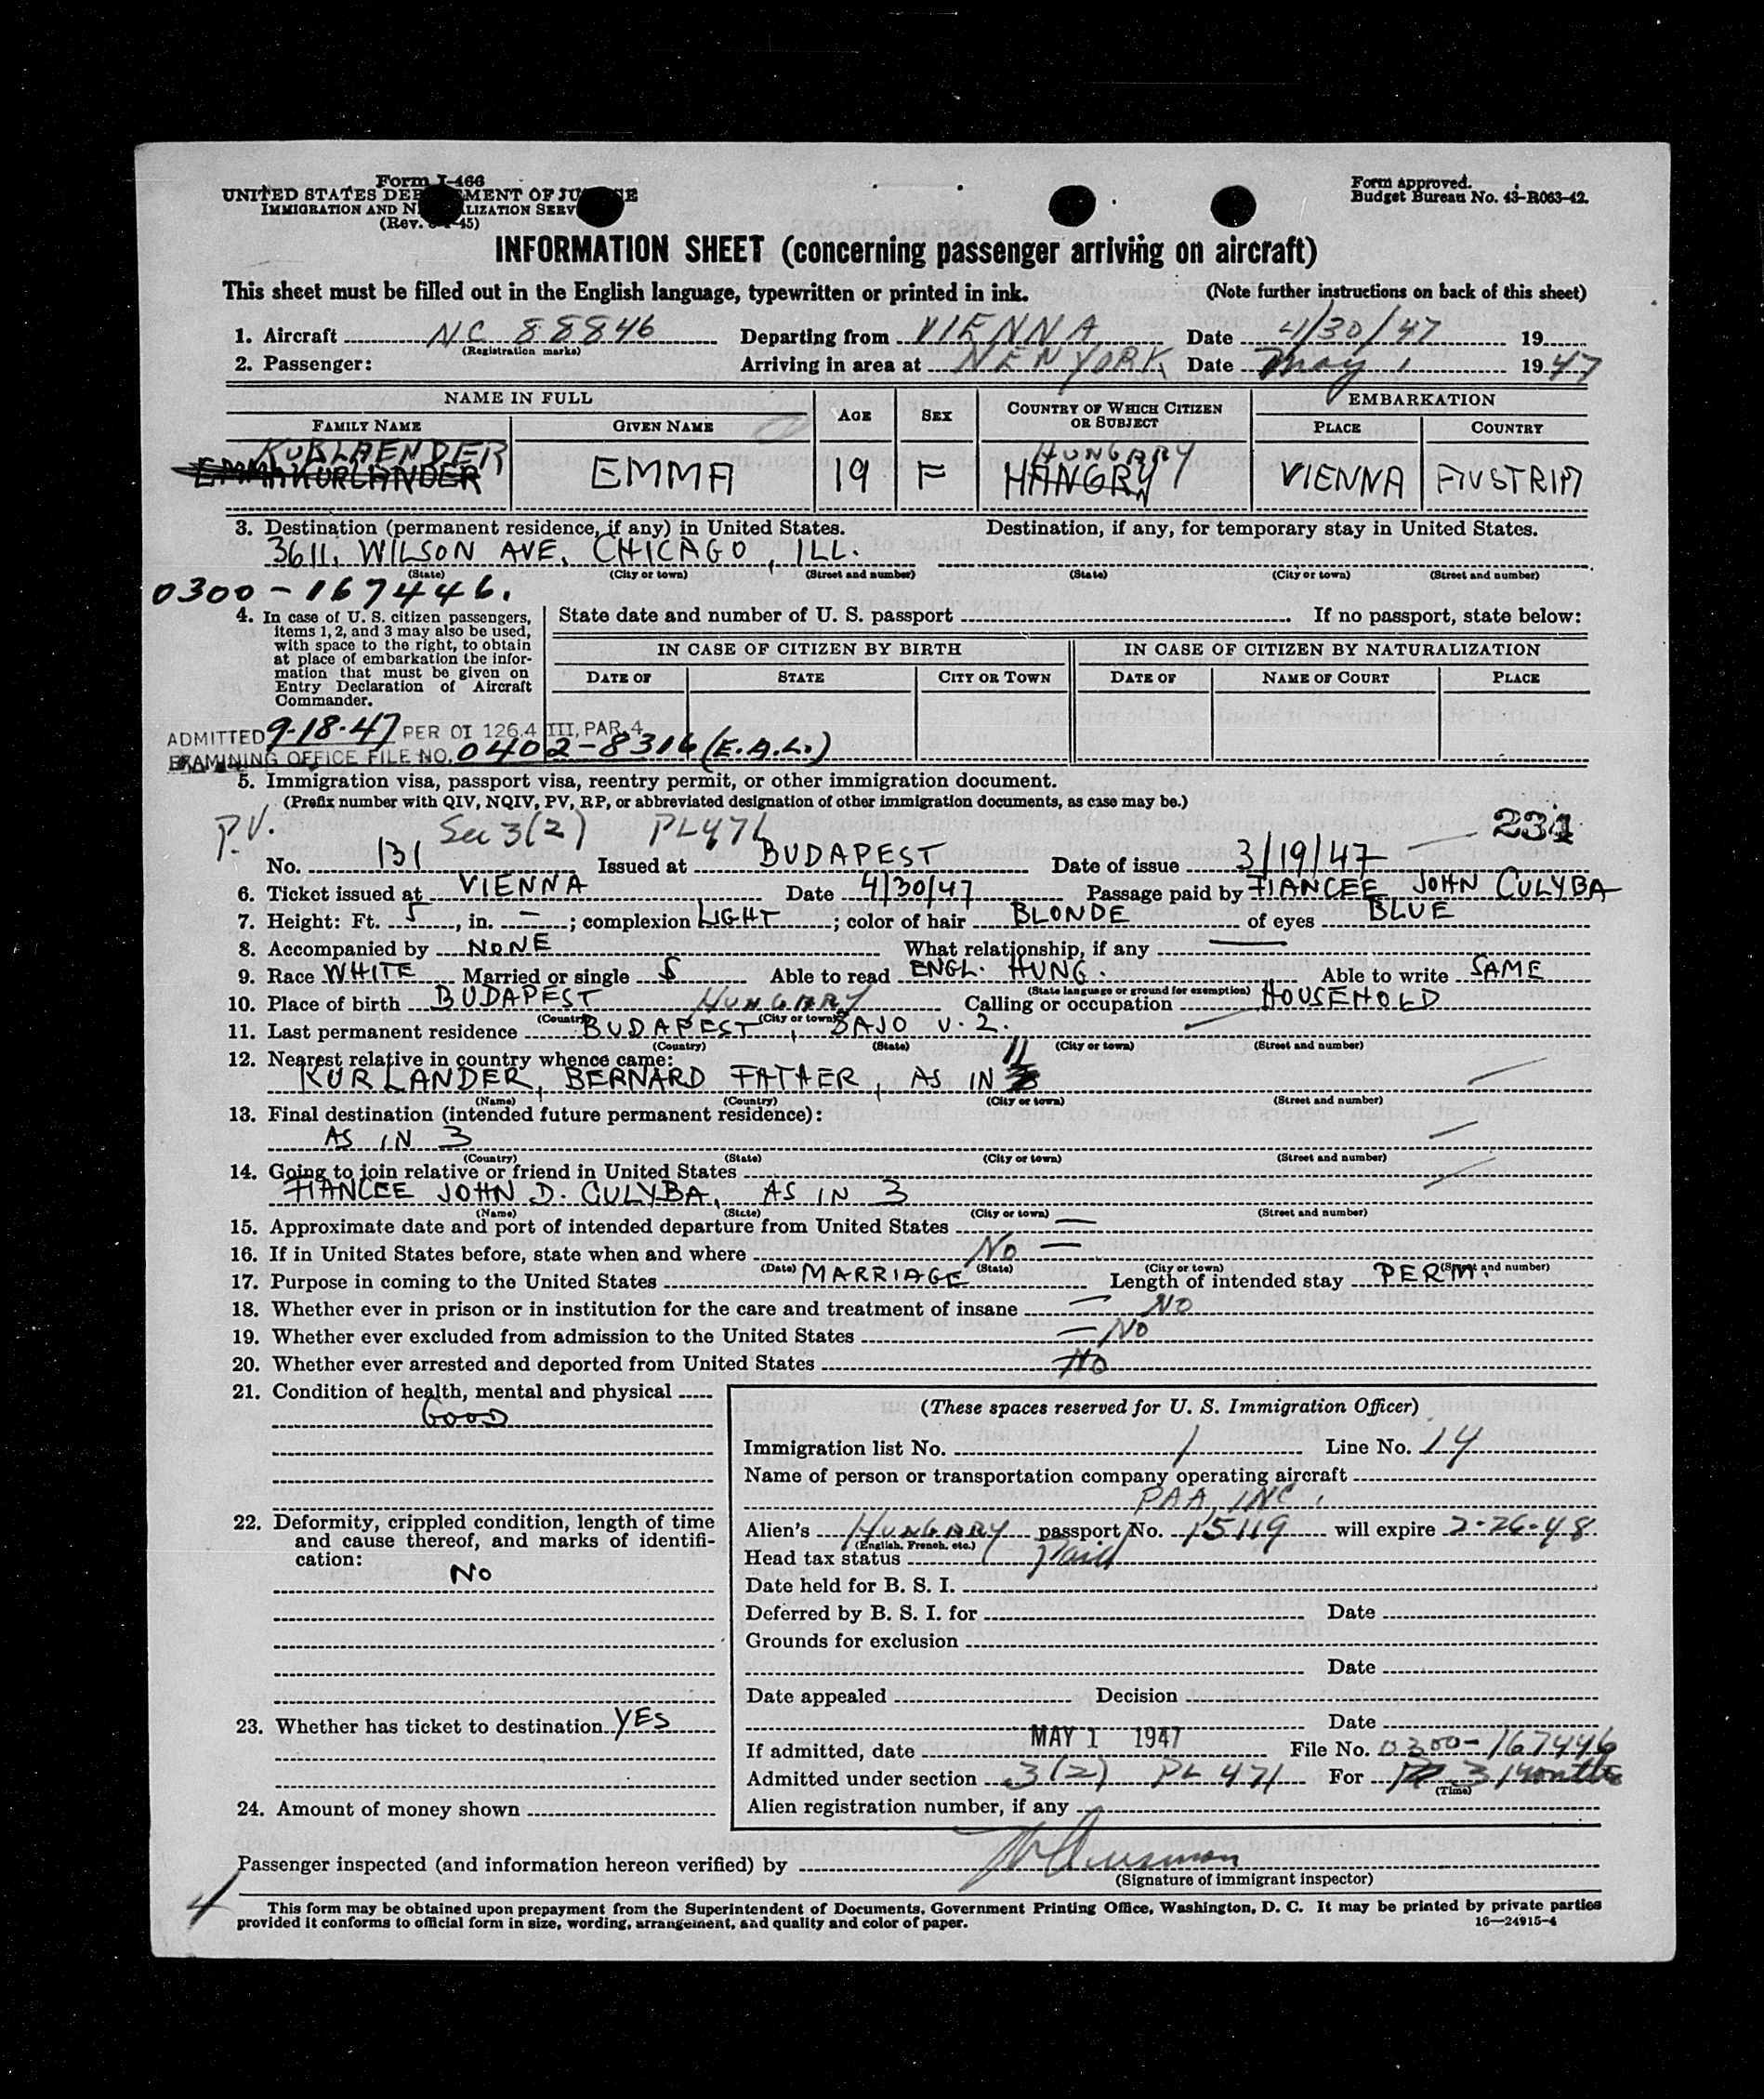 Form I-466
UNITED STATES DEPARTMENT OF JUSTICE
IMMIGRATION AND NATURALIZATION SERVICE
(Rev. 45)
Form approved.
Budget Bureau No. 43-R063-42.
INFORMATION SHEET (concerning passenger arriving on aircraft)
This sheet must be filled out in the English language, typewritten or printed in ink. (Note further instructions on back of this sheet)
1. Aircraft NC 88846 Departing from VIENNA Date 4/30/47 19
(Registration marks)
2. Passenger: Arriving in area at NEW YORK Date May 1 1947
NAME IN FULL AGE SEX COUNTRY OF WHICH CITIZEN OR SUBJECT EMBARKATION
FAMILY NAME GIVEN NAME PLACE COUNTRY
KURLAENDER HUNGARY
EMMA KURLANDER EMMA 19 F HANGRY VIENNA AUSTRIA
3. Destination (permanent residence, if any) in United States. Destination, if any, for temporary stay in United States.
3611, WILSON AVE, CHICAGO, ILL.
(State) (City or town) (Street and number) (State) (City or town) (Street and number)
0300-167446.
4. In case of U. S. citizen passengers, items 1, 2, and 3 may also be used, with space to the right, to obtain at place of embarkation the information that must be given on Entry Declaration of Aircraft Commander.
State date and number of U. S. passport If no passport, state below:
IN CASE OF CITIZEN BY BIRTH IN CASE OF CITIZEN BY NATURALIZATION
DATE OF STATE CITY OR TOWN DATE OF NAME OF COURT PLACE
ADMITTED 9-18-47 PER OI 126.4 III, PAR. 4
EXAMINING OFFICE FILE NO. 0402-8316 (E.A.L.)
5. Immigration visa, passport visa, reentry permit, or other immigration document.
(Prefix number with QIV, NQIV, PV, RP, or abbreviated designation of other immigration documents, as case may be.)
P.V. Sec 3(2) PL 471 231
No. 131 Issued at BUDAPEST Date of issue 3/19/47
6. Ticket issued at VIENNA Date 4/30/47 Passage paid by FIANCEE JOHN CULYBA
7. Height: Ft. 5, in. –; complexion LIGHT; color of hair BLONDE of eyes BLUE
8. Accompanied by NONE What relationship, if any —
9. Race WHITE Married or single S Able to read ENGL. HUNG. Able to write SAME
(State language or ground for exemption)
10. Place of birth BUDAPEST HUNGARY Calling or occupation HOUSEHOLD
(Country) (City or town)
11. Last permanent residence BUDAPEST, SAJO U. 2.
(Country) (State) (City or town) (Street and number)
12. Nearest relative in country whence came:
KURLANDER, BERNARD FATHER, AS IN 11
(Name) (Country) (City or town) (Street and number)
13. Final destination (intended future permanent residence):
AS IN 3
(Country) (State) (City or town) (Street and number)
14. Going to join relative or friend in United States
FIANCEE JOHN D. CULYBA, AS IN 3
(Name) (State) (City or town) (Street and number)
15. Approximate date and port of intended departure from United States —
16. If in United States before, state when and where No —
(Date) (State) (City or town) (Street and number)
17. Purpose in coming to the United States MARRIAGE Length of intended stay PERM.
18. Whether ever in prison or in institution for the care and treatment of insane — NO
19. Whether ever excluded from admission to the United States — NO
20. Whether ever arrested and deported from United States NO
21. Condition of health, mental and physical
GOOD
22. Deformity, crippled condition, length of time and cause thereof, and marks of identification:
No
23. Whether has ticket to destination YES
24. Amount of money shown
(These spaces reserved for U. S. Immigration Officer)
Immigration list No. 1 Line No. 14
Name of person or transportation company operating aircraft
PAA, INC.
Alien's HUNGARY passport No. 15119 will expire 2-26-48
(English, French, etc.)
Head tax status Paid
Date held for B. S. I.
Deferred by B. S. I. for Date
Grounds for exclusion
Date
Date appealed Decision
Date
If admitted, date MAY 1 1947 File No. 0300-167446
Admitted under section 3(2) PL 471 For 3 Months
(Time)
Alien registration number, if any
Passenger inspected (and information hereon verified) by
(Signature of immigrant inspector)
This form may be obtained upon prepayment from the Superintendent of Documents, Government Printing Office, Washington, D. C. It may be printed by private parties
provided it conforms to official form in size, wording, arrangement, and quality and color of paper. 16—24915-4